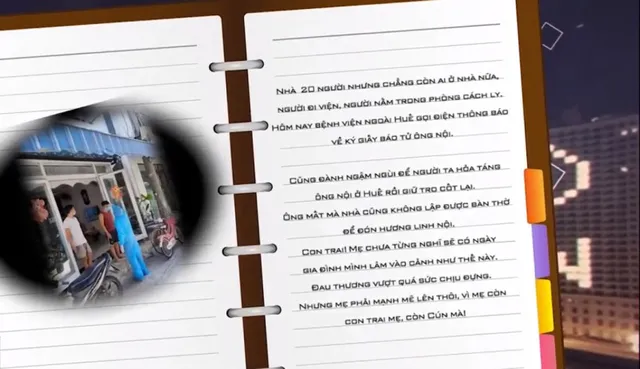 NHÀ 20 NGƯỜI NHƯNG CHẲNG CÒN AI Ở NHÀ NỮA,
NGƯỜI ĐI VIỆN, NGƯỜI NẰM TRONG PHÒNG CÁCH LY.
HÔM NAY BỆNH VIỆN NGOÀI HUẾ GỌI ĐIỆN THÔNG BÁO
VỀ KÝ GIẤY BÁO TỬ ÔNG NỘI.
CŨNG ĐÀNH NGẬM NGÙI ĐỂ NGƯỜI TA HỎA TÁNG
ÔNG NỘI Ở HUẾ RỒI GIỮ TRO CỐT LẠI.
ÔNG MẤT MÀ NHÀ CŨNG KHÔNG LẬP ĐƯỢC BÀN THỜ
ĐỂ ĐÓN HƯƠNG LINH NỘI.
CON TRAI! MẸ CHƯA TỪNG NGHĨ SẼ CÓ NGÀY
GIA ĐÌNH MÌNH LÂM VÀO CẢNH NHƯ THẾ NÀY.
ĐAU THƯƠNG VƯỢT QUÁ SỨC CHỊU ĐỰNG.
NHƯNG MẸ PHẢI MẠNH MẼ LÊN THÔI, VÌ MẸ CÒN
CON TRAI MẸ, CÒN CÚN MÀ!